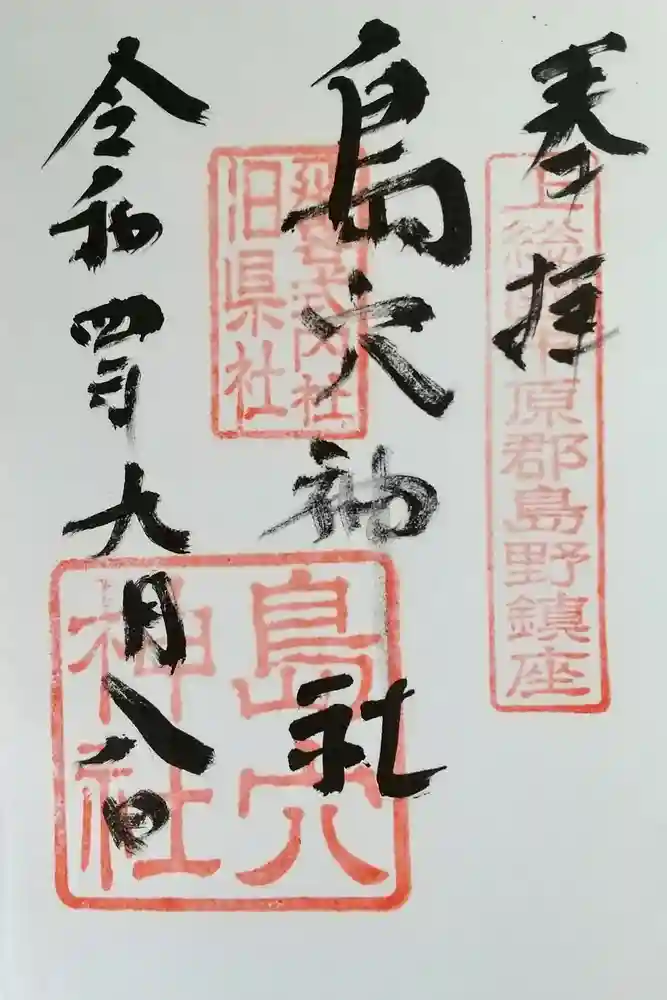 奉拝
上総国市原郡島野鎮座
島穴神社
延喜式内社
旧県社
島穴
神社
令和四年九月八日